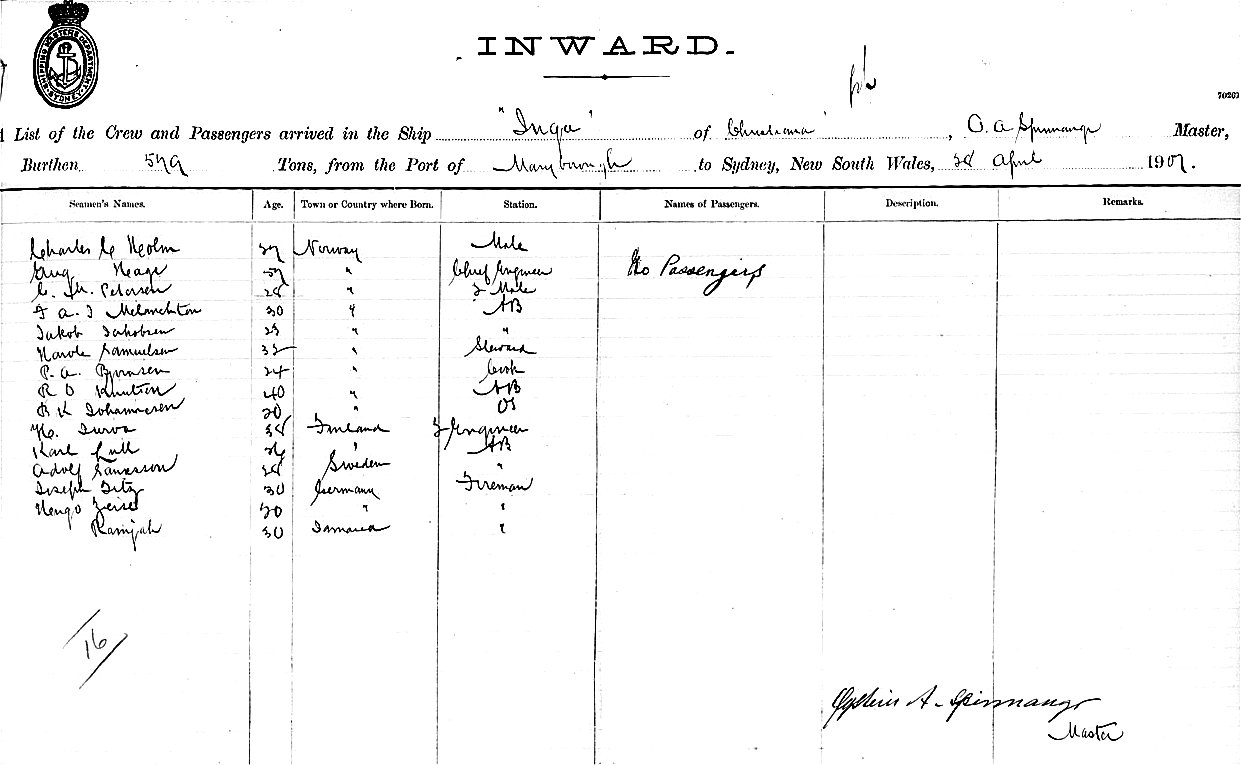 SHIPPING MASTERS DEPARTMENT SYDNEY
INWARD.
70263
List of the Crew and Passengers arrived in the Ship "Inga" of , O. A. Spinnangr Master,
Burthen 579 Tons, from the Port of Maryborough to Sydney, New South Wales, 28 April 1907.
Seamen's Names. Age. Town or Country where Born. Station. Names of Passengers. Description. Remarks.
Charles C Holm Norway Mate
Aug Hage " Chief Engineer No Passengers
C. M. Petersen 28 " 2 Mate
F A. J Melanchton 30 " AB
Jakob Jakobsen 23 " "
Samuelsen 32 " Steward
P. A. 24 " Cook
R O Knutsen 40 " AB
B K Johannesen 20 " OS
H. 38 Finland 2 Engineer
Karl 26 " AB
Adolf 28 Sweden "
Joseph Titz 30 Germany Fireman
Zeise 20 " "
Ramjah 30 Jamaica "
16
Øystein A. Spinnangr
Master